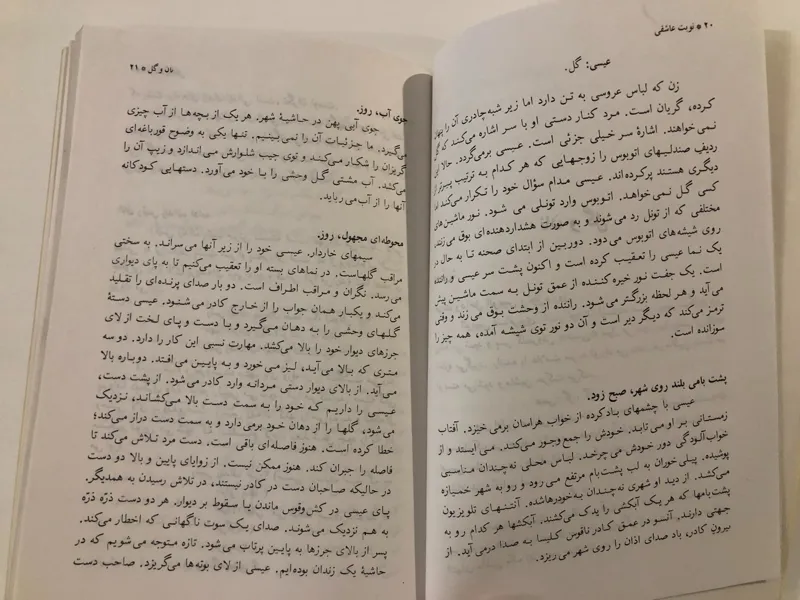 ۲۰ * نوبت عاشقی
عیسی: گل.
زن که لباس عروسی به تن دارد اما زیر شبه‌چادری آن را پنهان
کرده، گریان است. مرد کنار دستی او با سر اشاره می‌کنند که گل
نمی‌خواهند. اشارهٔ سر خیلی جزئی است. عیسی برمی‌گردد. حالا این
ردیف صندلیهای اتوبوس را زوجهایی که هر کدام به ترتیب پیرتر از
دیگری هستند پرکرده‌اند. عیسی مدام سؤال خود را تکرار می‌کند اما
کسی گل نمی‌خواهد. اتوبوس وارد تونلی می شود. نور ماشین‌های
مختلفی که از تونل رد می شوند و به صورت هشداردهنده‌ای بوق می‌زنند،
روی شیشه‌های اتوبوس می‌دود. دوربین از ابتدای صحنه تا به حال در
یک نما عیسی را تعقیب کرده است و اکنون پشت سر عیسی و راننده
است. یک جفت نور خیره کننده از عمق تونل به سمت ماشین پیش
می آید و هر لحظه بزرگتر می‌شود. راننده از وحشت بوق می زند و وقتی
ترمز می‌کند که دیگر دیر است و آن دو نور توی شیشه آمده، همه چیز را
سوزانده است.
پشت بامی بلند روی شهر، صبح زود.
عیسی با چشمهای بادکرده از خواب هراسان برمی خیزد. آفتاب
زمستانی بر او می تابد. خودش را جمع وجور می‌کند. می ایستد و از
خواب‌آلودگی دور خودش می چرخد. لباس محلی نه‌چندان مناسبی
پوشیده. پیلی‌خوران به لب پشت‌بام مرتفع می‌رود و رو به شهر خمیازه
می‌کشد. از دید او شهری نه‌چندان به‌خودرهاشده. آنتنهای تلویزیون
پشت‌بامها که هر یک آبکشی را یدک می‌کشند. آبکشها هر کدام رو به
جهتی دارند. آنسو در عمق کادر ناقوس کلیسا به صدا درمی آید. از
بیرونِ کادر، باد صدای اذان را روی شهر می‌ریزد.
نان و گل * ۲۱
جوی آب، روز.
جوی آبی پهن در حاشیهٔ شهر. هر یک از بچه‌ها از آب چیزی
می‌گیرد. ما جزئیات آن را نمی‌بینیم. تنها یکی به وضوح قورباغه‌ای
گریزان را شکار می‌کند و توی جیب شلوارش می‌اندازد و زیپ آن را
می‌کشد. آب مشتی گل وحشی را با خود می‌آورد. دستهایی کودکانه
آنها را از آب می رباید.
محوطه‌ای مجهول، روز.
سیمهای خاردار. عیسی خود را از زیر آنها می‌سراند. به سختی
مراقب گلهاست. در نماهای بسته او را تعقیب می‌کنیم تا به پای دیواری
می‌رسد. نگران و مراقب اطراف است. دو بار صدای پرنده‌ای را تقلید
می‌کند و یکبار همان جواب را از خارج کادر می‌شنود. عیسی دستهٔ
گلهای وحشی را به دهان می‌گیرد و با دست و پای لخت از لای
جرزهای دیوار خود را بالا می‌کشد. مهارت نسبی این کار را دارد. دو سه
متری که بالا می‌آید، لیز می خورد و به پایین می افتد. دوباره بالا
می‌آید. از بالای دیوار دستی مردانه وارد کادر می‌شود. از پشت دست،
عیسی را داریم که خود را به سمت دست بالا می‌کشاند، نزدیک
می‌شود، گلها را از دهان خود برمی دارد و به سمت دست دراز می‌کند؛
خطا کرده است. هنوز فاصله‌ای باقی است. دست مرد تلاش می‌کند تا
فاصله را جبران کند. هنوز ممکن نیست. از زوایای پایین و بالا دو دست
در حالیکه صاحبان دست در کادر نیستند، در تلاش رسیدن به همدیگر.
پای عیسی در کش‌وقوس ماندن یا سقوط بر دیوار. هر دو دست ذرّه ذرّه
به هم نزدیک می‌شوند. صدای یک سوت ناگهانی که اخطار می‌کند.
پسر از بالای جرزها به پایین پرتاب می‌شود. تازه متوجه می‌شویم که در
حاشیهٔ یک زندان بوده‌ایم. عیسی از لای بوته‌ها می‌گریزد. صاحب دست